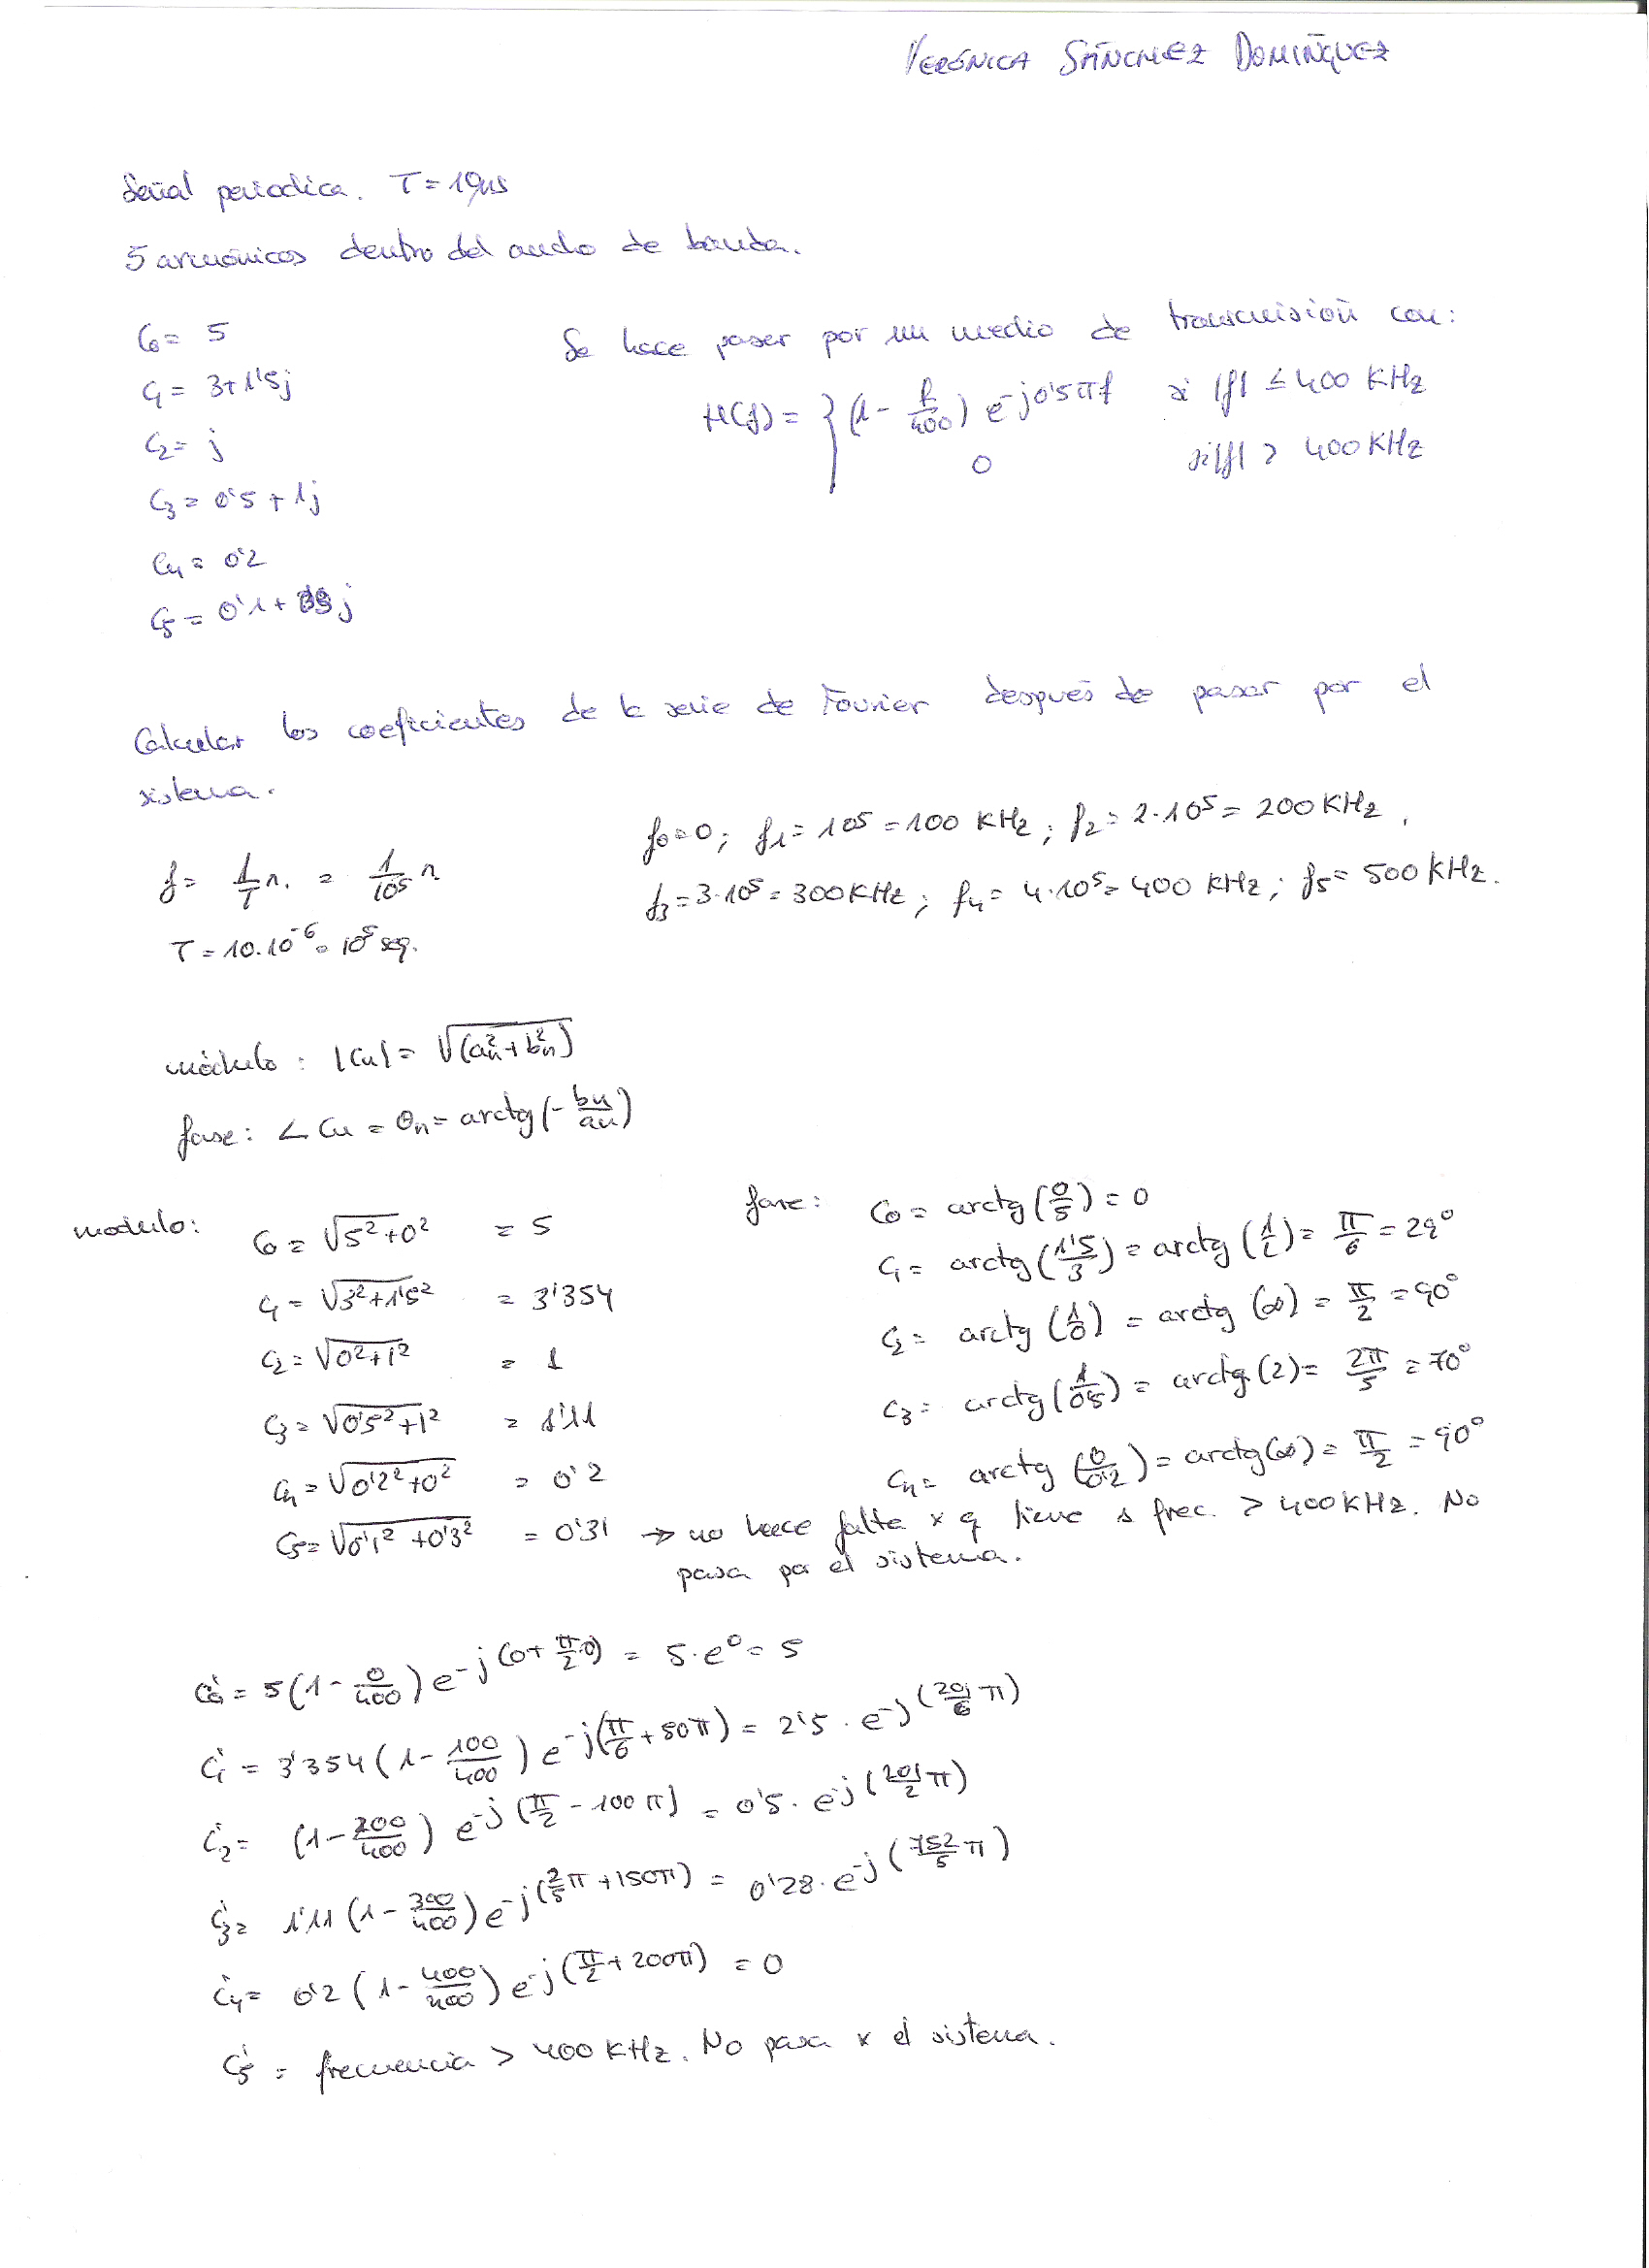 VERÓNICA SÁNCHEZ DOMÍNGUEZ
Señal periodica. T = 10µs
5 armónicos dentro del ancho de banda.
C₀ = 5
C₁ = 3+1'5j
C₂ = j
C₃ = 0'5 + 1j
C₄ = 0'2
C₅ = 0'1 + j
Se hace pasar por un medio de transmisión con:
H(f) = { (1 - f/400) e^-j0'5πf si |f| ≤ 400 KHz
0 si |f| > 400 KHz
Calcular los coeficientes de la serie de Fourier después de pasar por el
sistema.
f = 1/T n. = 1/10⁵ n
T = 10.10⁻⁶ = 10⁵ seg.
f₀=0; f₁= 10⁵ = 100 KHz; f₂= 2·10⁵ = 200 KHz,
f₃= 3·10⁵ = 300 KHz; f₄= 4·10⁵ = 400 KHz; f₅= 500 KHz.
módulo: |Cn| = √(an²+bn²)
fase: ∠Cn = θn = arctg(-bn/an)
modulo:
C₀ = √5²+0² = 5
C₁ = √3²+1'5² = 3'354
C₂ = √0²+1² = 1
C₃ = √0'5²+1² = 1'11
C₄ = √0'2²+0² = 0'2
C₅ = √0'1²+0'3² = 0'31 → no hace falta x q tiene 1 frec. > 400 KHz. No
pasa por el sistema.
fase: C₀ = arctg(0/5) = 0
C₁ = arctg(1'5/3) = arctg(1/2) = π/6 = 29°
C₂ = arctg(1/0) = arctg(∞) = π/2 = 90°
C₃ = arctg(1/0'5) = arctg(2) = 2π/5 = 70°
C₄ = arctg(0/0'2) = arctg(∞) = π/2 = 90°
C₀' = 5(1 - 0/400) e^-j(0+π/2·0) = 5·e⁰ = 5
C₁' = 3'354(1 - 100/400) e^-j(π/6+50π) = 2'5·e^-j(301/6 π)
C₂' = (1 - 200/400) e^-j(π/2 - 100π) = 0'5·e^-j(201/2 π)
C₃' = 1'11(1 - 300/400) e^-j(2/5π+150π) = 0'28·e^-j(752/5 π)
C₄' = 0'2(1 - 400/400) e^-j(π/2+200π) = 0
C₅' = frecuencia > 400 KHz. No pasa x el sistema.